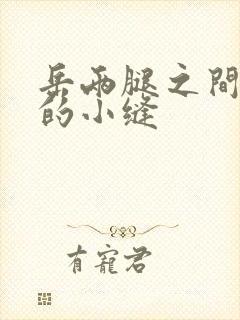 岳兩腿之間
的小缝
有寵君